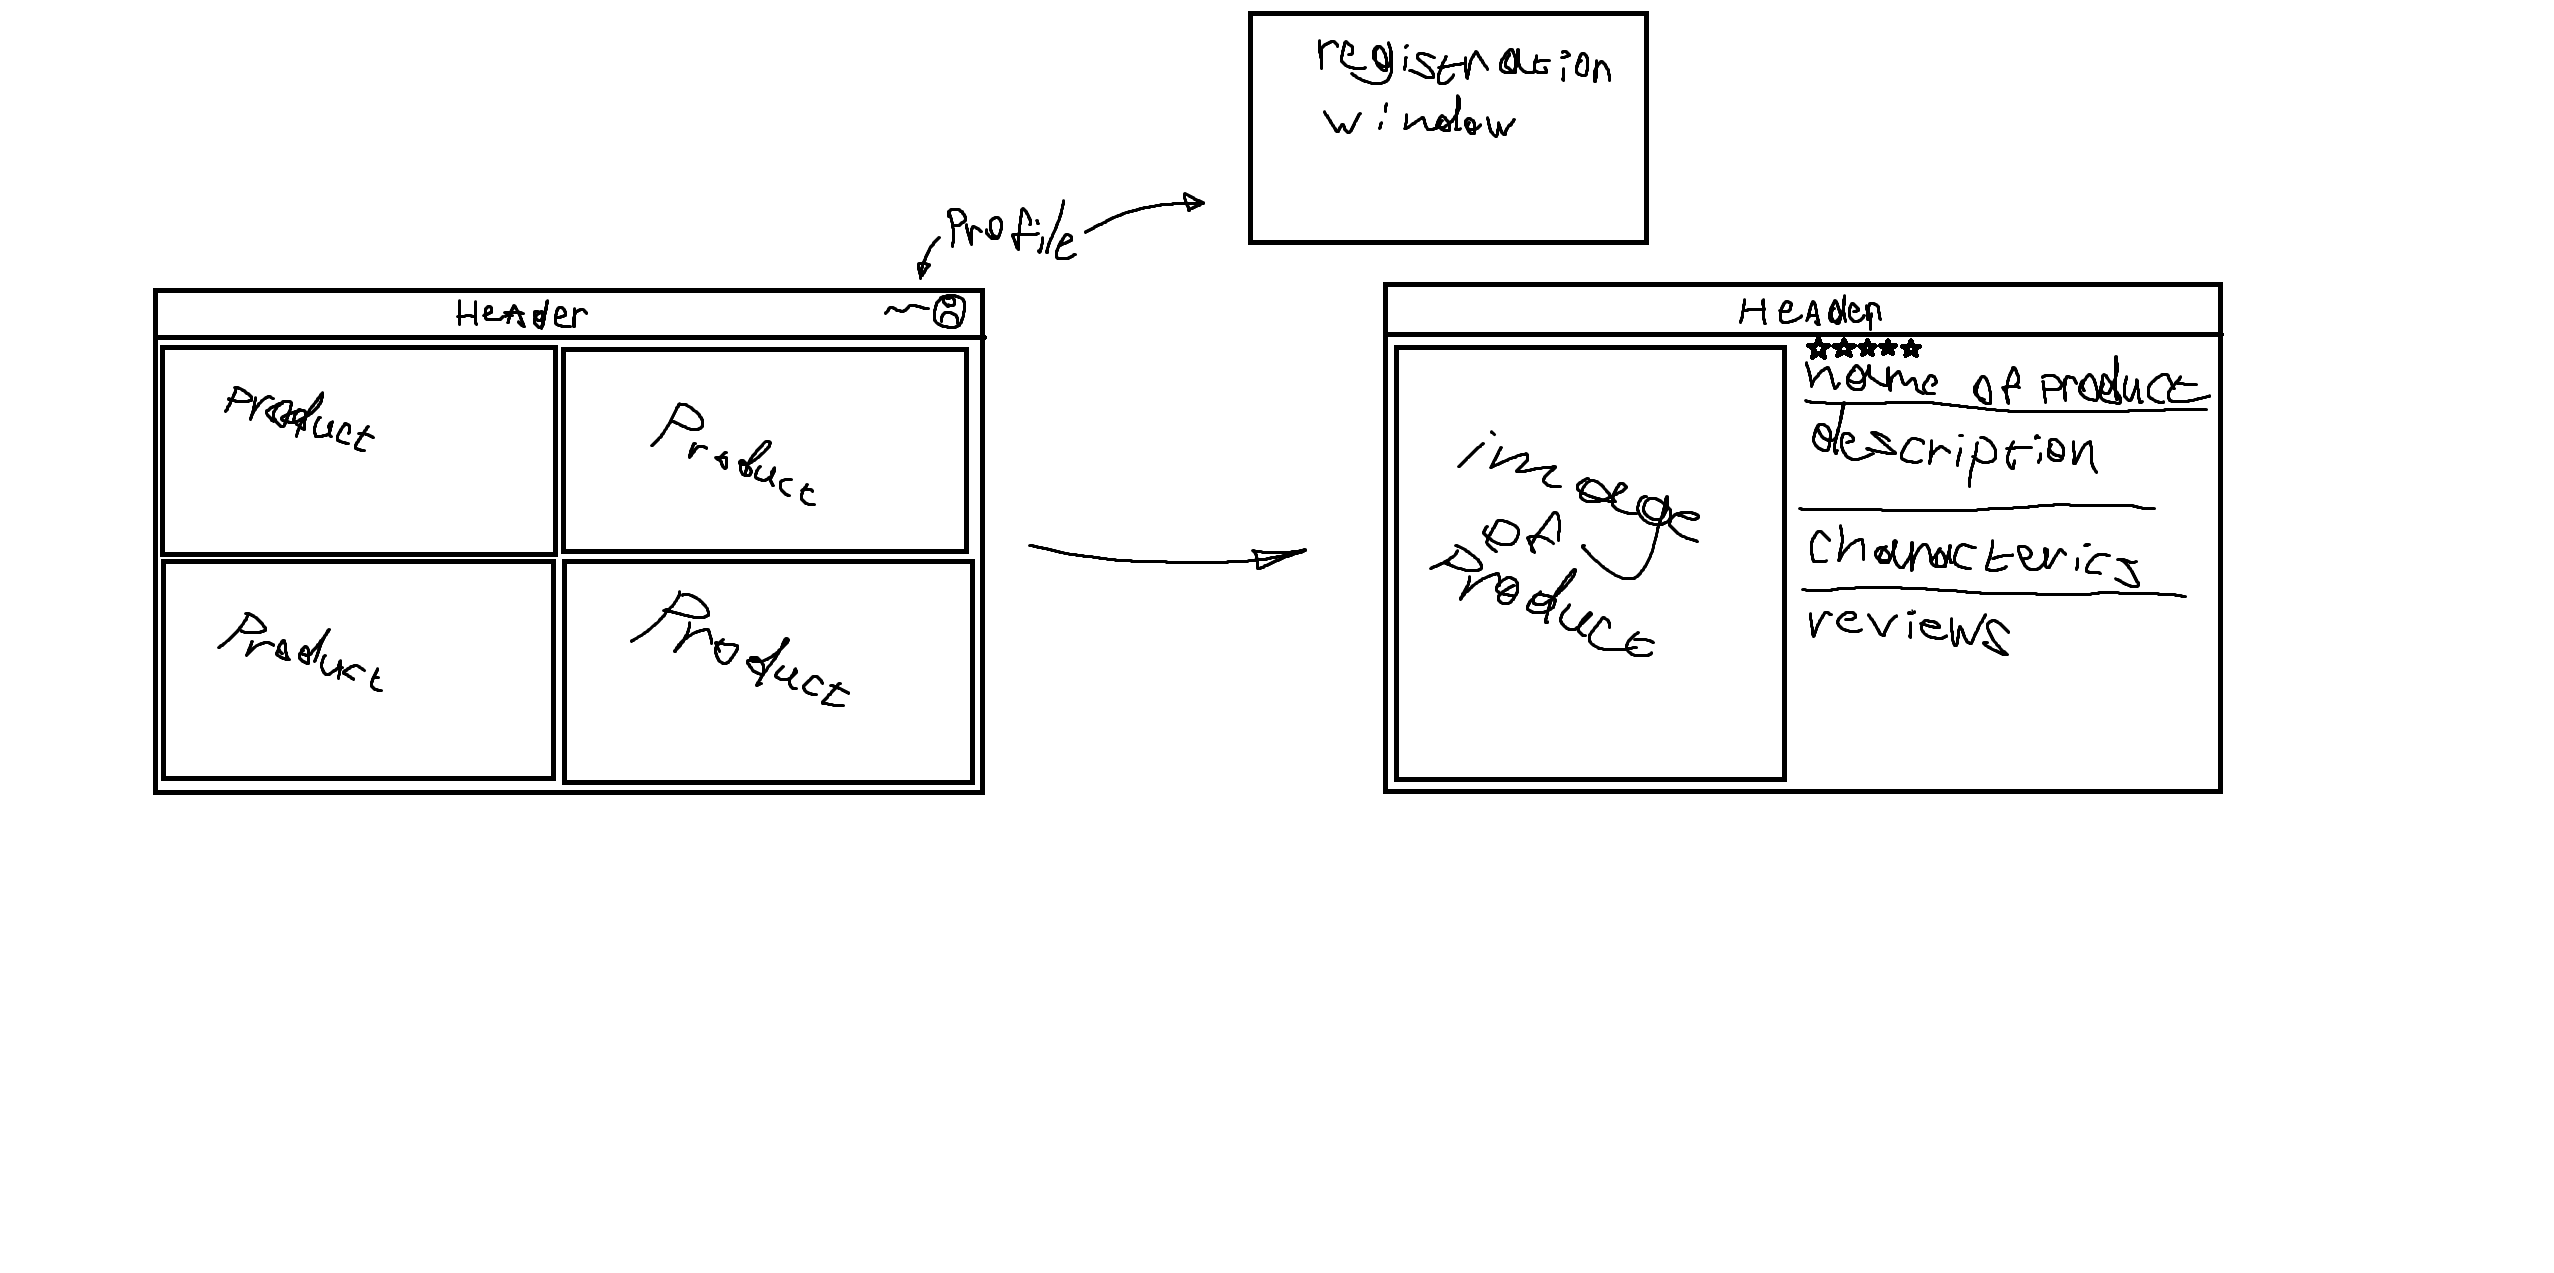 registration
window
Profile
Header
Product
Product
Product
Product
Header
image
of
Product
name of product
description
characterics
reviews